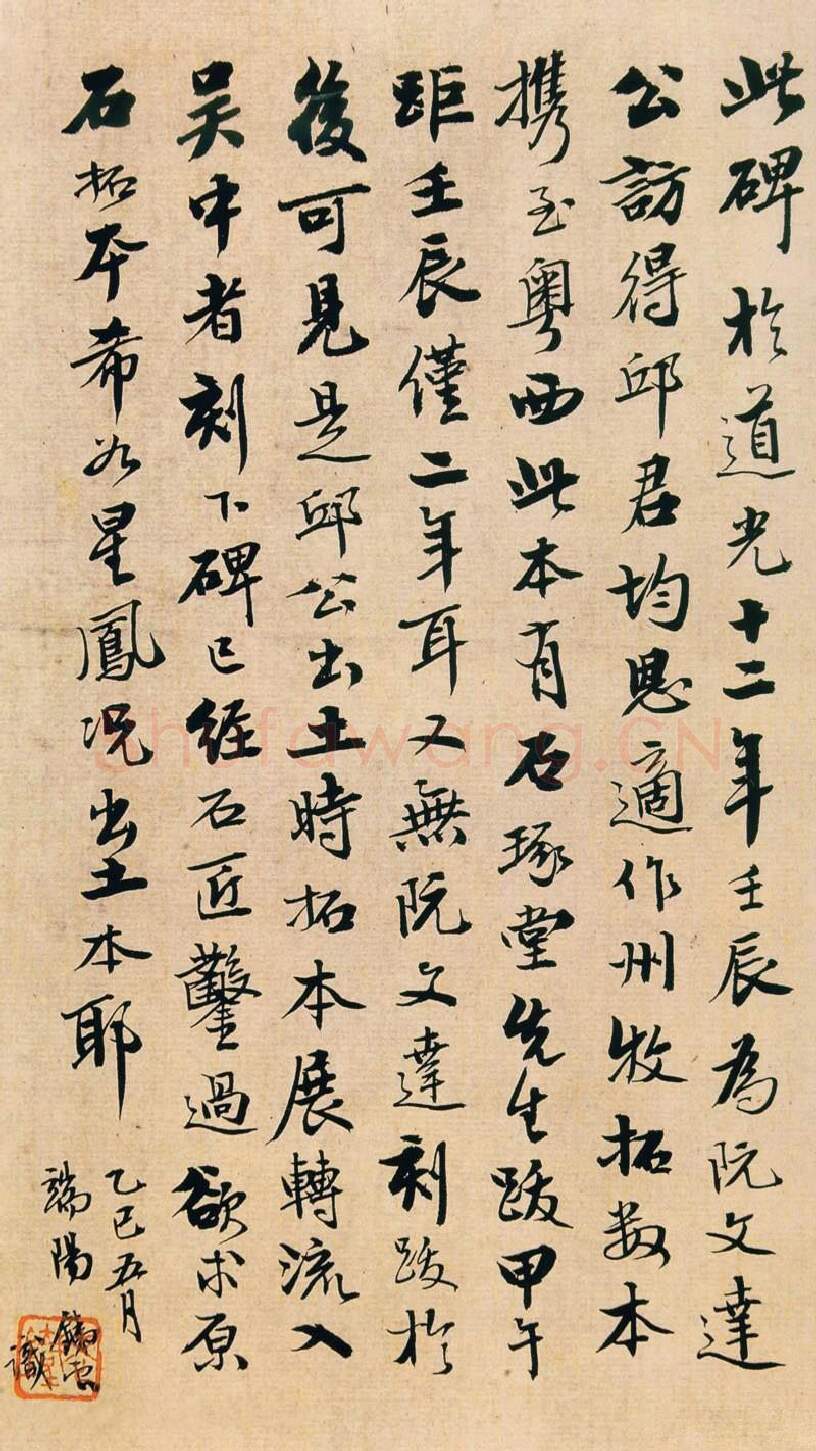 此碑於道光十二年壬辰為阮文達
公訪得邱君均恩適作州牧拓数本
携至粵西此本有石琢堂先生跋甲午
距壬辰僅二年耳又無阮文達刻跋於
後可見是邱公出土時拓本展轉流入
吴中者刻下碑已經石匠鑿過欲求原
石拓本希如星鳳况出土本耶
乙巳五月
端陽
識
shufawang.CN